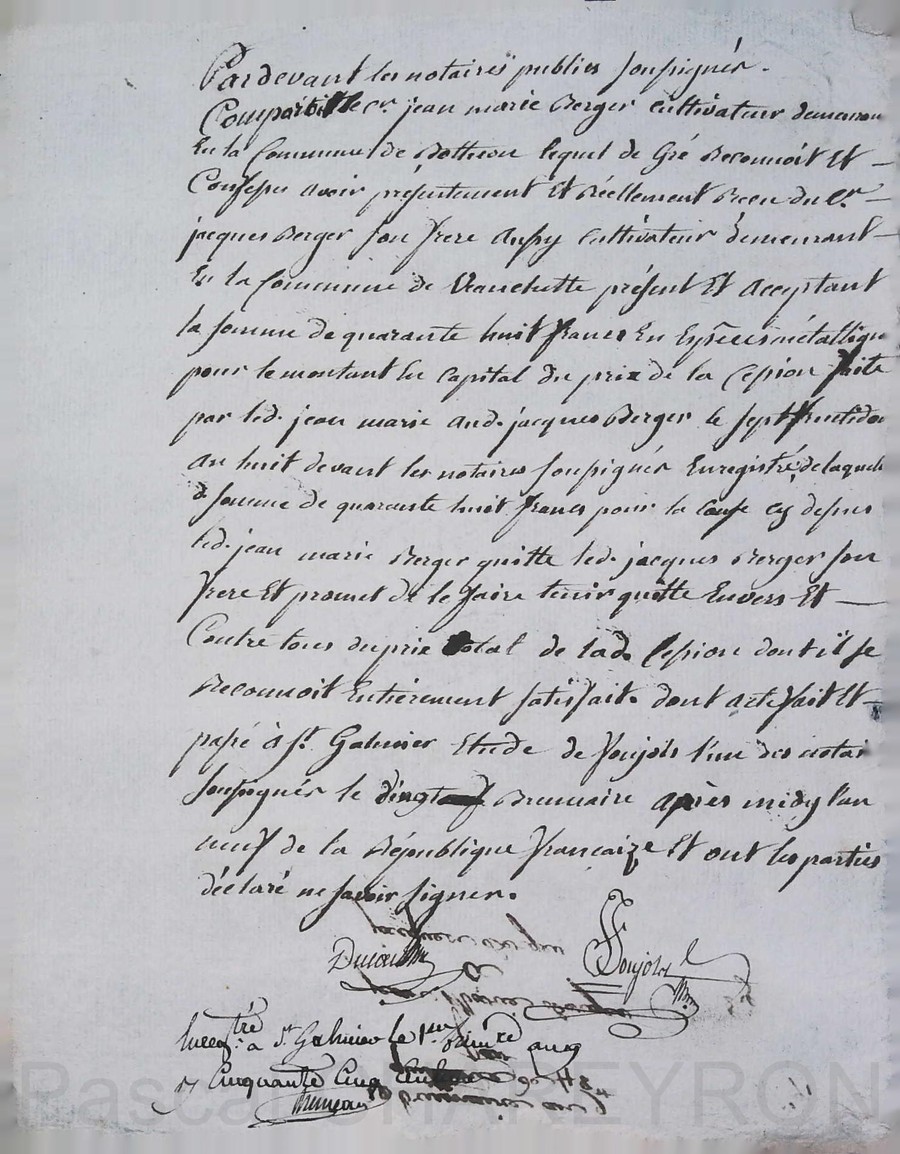 Pardevant les notaires publics soussignés.
Comparut le cn jean marie Berger cultivateur demeuran
En la Commune de Botheon lequel de Gré Reconnoit Et
Confesse avoir présentement Et Réellement Recu du cn
jacques Berger son frere aussy cultivateur demeurant
En la Commune de Veauchette présent Et acceptant
la somme de quarante huit francs En Espèces métallique
pour le montant En Capital du prix de la Cession faite
par led. jean marie aud. jacques Berger le sept fructidor
an huit devant les notaires soussignés Enregistré, de laquelle
somme de quarante huit francs pour la cause cy dessus
led. jean marie Berger quitte led. jacques Berger son
frere Et promet de le faire tenir quitte Envers Et
Contre tous du prix total de lad. Cession dont il se
Reconnoit Entièrement satisfait. dont acte fait Et
passé à St. Galmier Etude de Soujols l'un des notai
soussignés le vingt Brumaire après midy l'an
neuf de la République francaize Et ont les parties
déclaré ne savoir signer.
Soujols
Enregtré à St Galmier le 1er frimre an 9
Cinquante Cinq